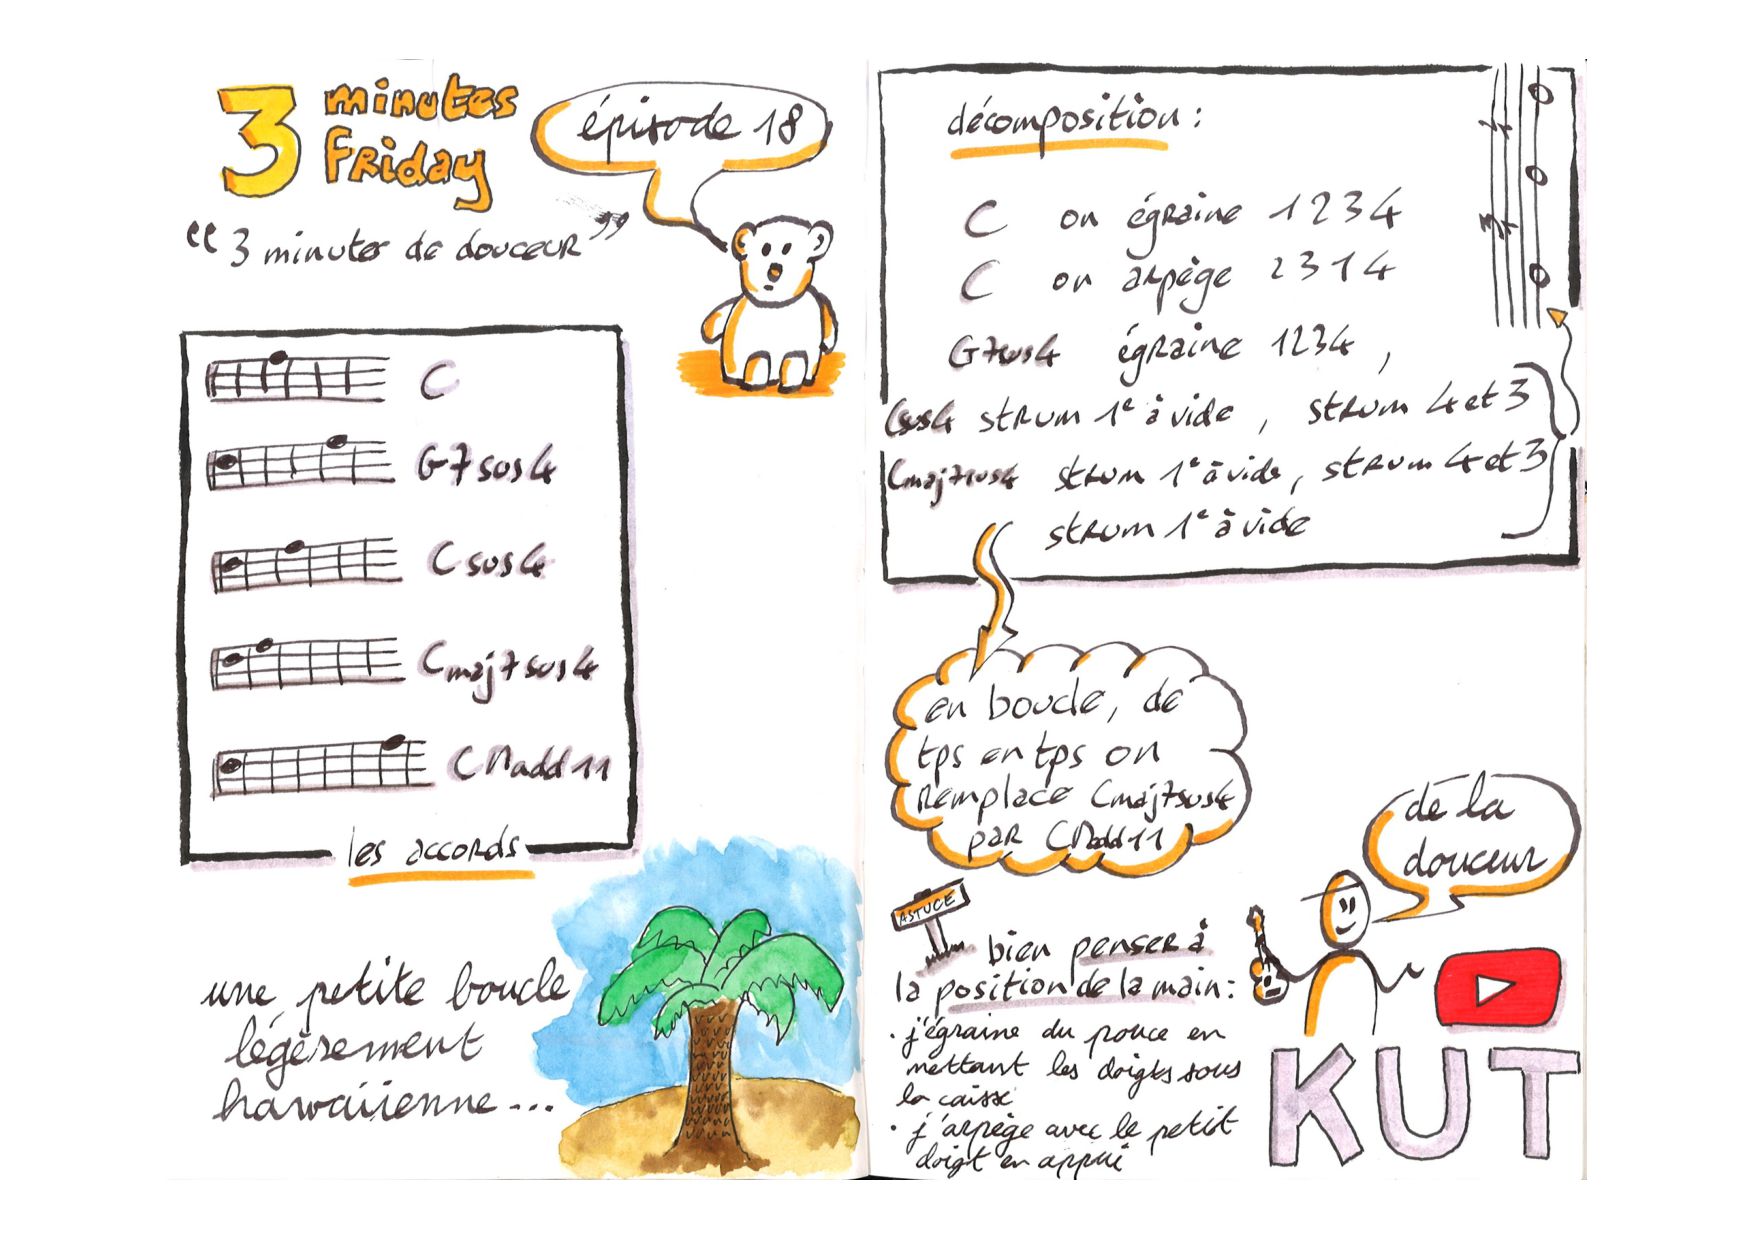 3 minutes
Friday
épisode 18
“3 minutes de douceur”
C
G7sus4
Csus4
Cmaj7sus4
CMadd11
les accords
une petite boucle
légèrement
hawaïienne...
décomposition :
C on égraine 1234
C on arpège 2314
G7sus4 égraine 1234,
Csus4 strum 1e à vide, strum 4 et 3
Cmaj7sus4 strum 1e à vide, strum 4 et 3
strum 1e à vide
en boucle, de
tps en tps on
remplace Cmaj7sus4
par CMadd11
de la
douceur
ASTUCE
bien penser à
la position de la main :
• j'égraine du pouce en
mettant les doigts sous
la caisse
• j'arpège avec le petit
doigt en appui
KUT